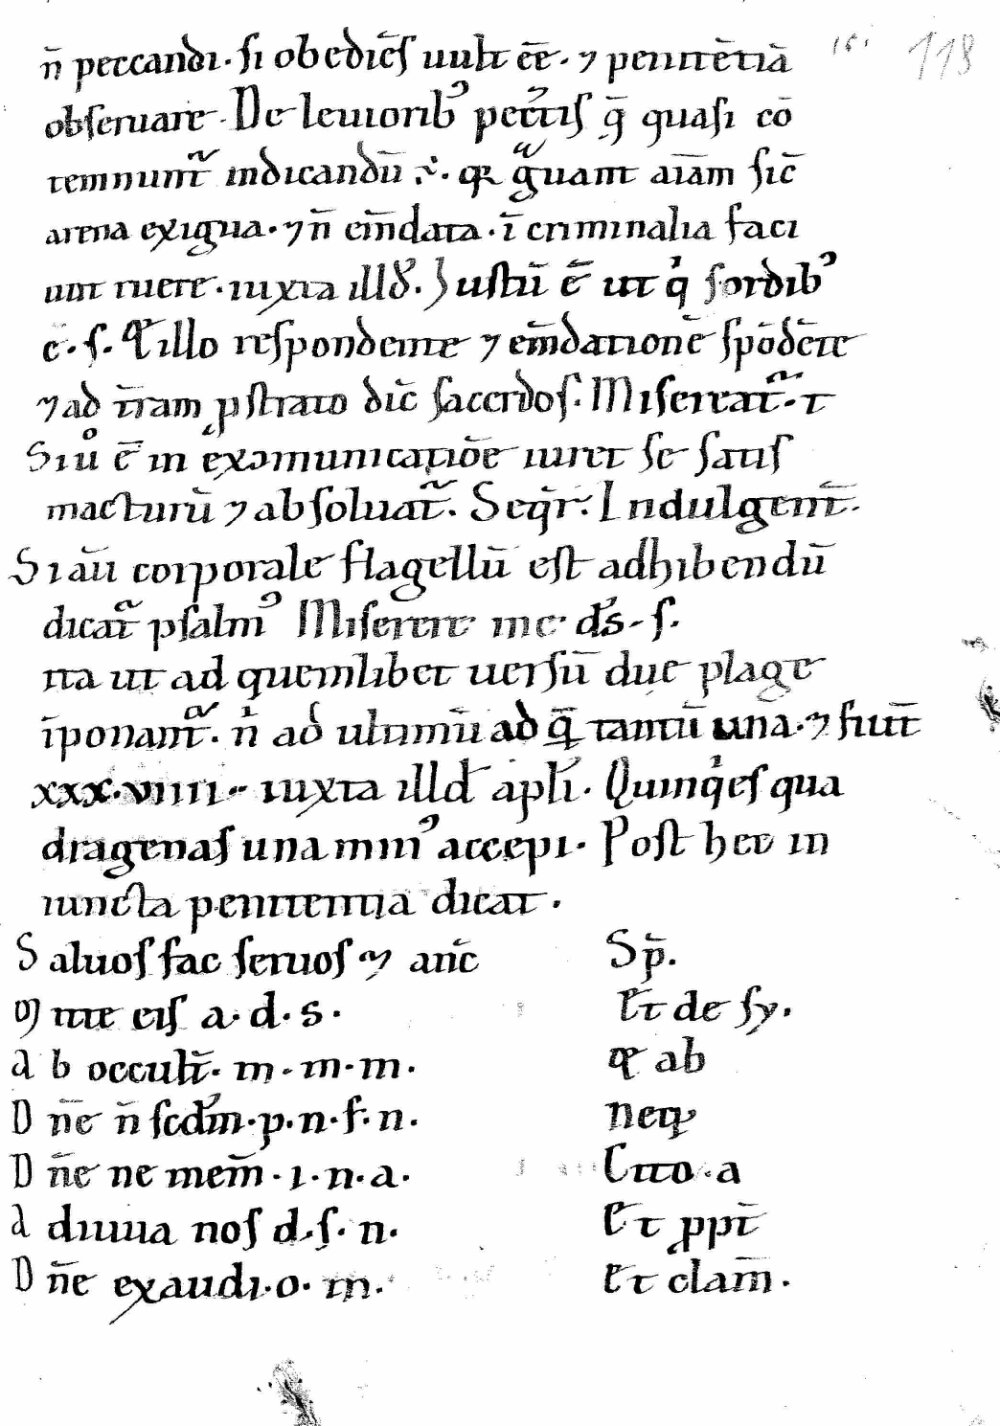 n̄ peccandi. si obediēs uult ēē. ⁊ penitētiā 118
obseruare. De leuiorib᾽ peccīs q̄ quasi cō
temnunt᷑ indicandū
arena exigua. ⁊ n̄ em̄data. ī criminalia faci
unt ruere. iuxta illd᾽. Justū ē ut qⁱ sordib᾽
c. s. Et illo respondente ⁊ em̄datione spōdēte
⁊ ad tr̄am ꝓstrato dic̄ sacerdos. Misereat᷑. t
Si u° ē in excomunicatiōe iuret se satis
facturū ⁊ absoluat᷑. Seqr̄. Indulgent̄.
Si aū corporale flagellū est adhibendū
dicat᷑ psalm᾽ Miserere me. ds̄. s.
ita ut ad quemlibet uersū due plage
īponant᷑. nⁱ ad ultimū ad q̄ tantū una. ⁊ fiūt
xxx.viiii. iuxta illd̄ apl̄i. Quinqⁱes qua
dragenas una min᾽ accepi. Post hec in
iuncta penitentia dicat.
Saluos fac seruos ⁊ anc̄ Sp̄.
Mitte eis a. d. s. Et de sy.
Ab occult̄. m. m. m. Et ab
Dn̄e n̄ scdm̄. p. n. f. n. Neq;
Dn̄e ne mem̄. i. n. a. Cito. a
Adiuua nos d. s. n. Et ꝓpt̄
Dn̄e exaudi. o. m. Et clam̄.